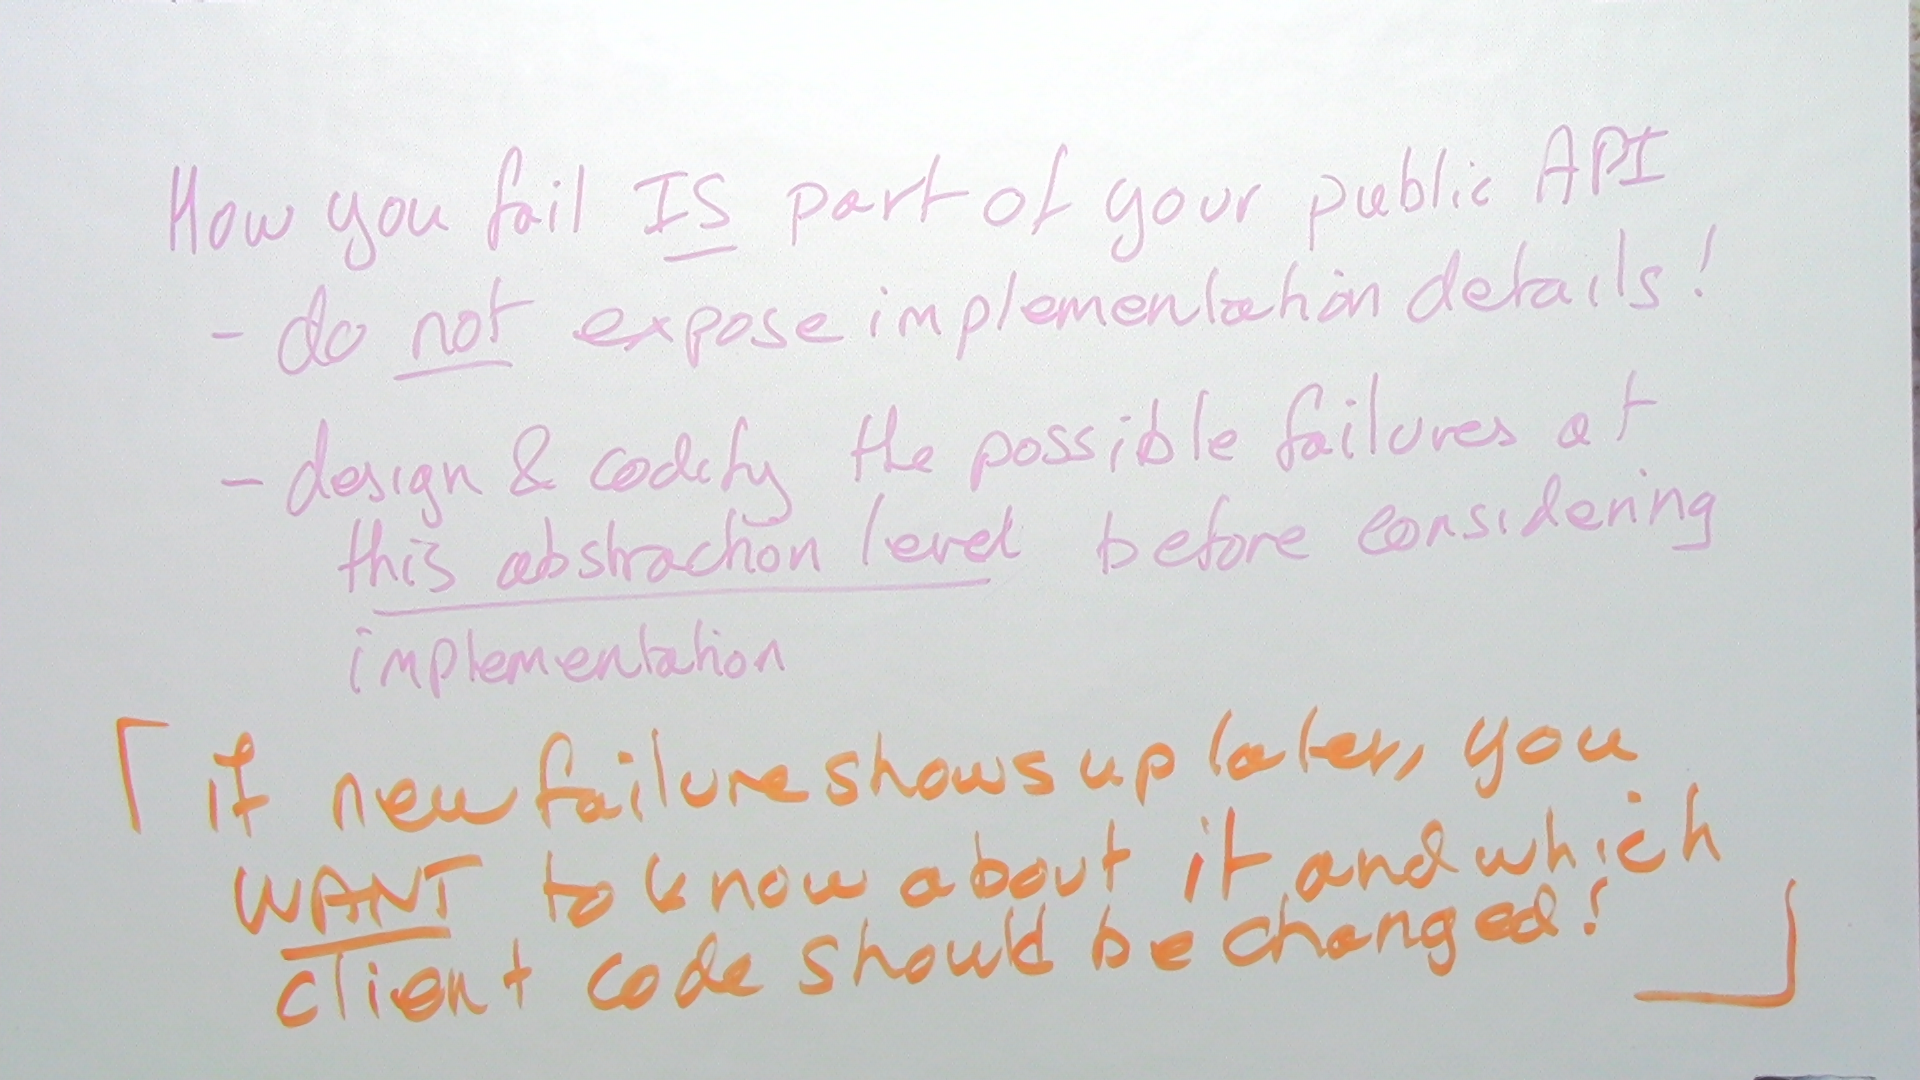 How you fail IS part of your public API
- do not expose implementation details!
- design & codify the possible failures at
this abstraction level before considering
implementation
if new failure shows up later, you
WANT to know about it and which
client code should be changed!